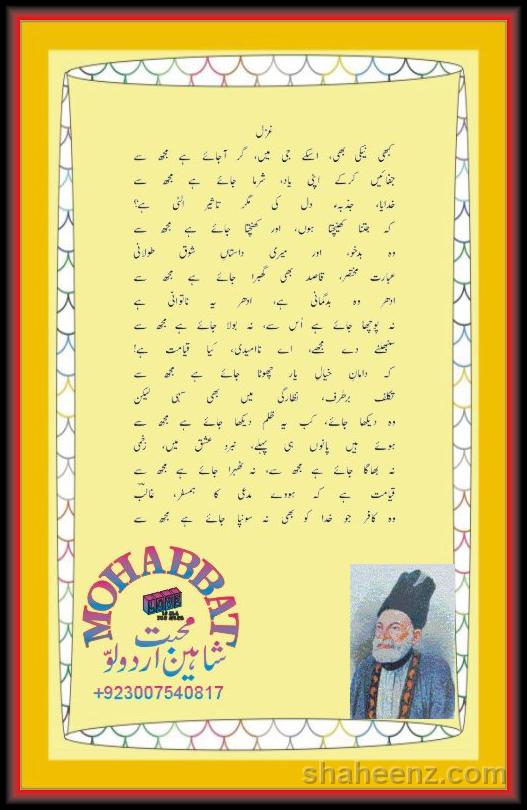 غزل
کبھی نیکی بھی، اسکے جی میں، گر آجائے ہے مجھ سے
جفائیں کرکے اپنی یاد، شرما جائے ہے مجھ سے
خدایا، جذبہء دل کی مگر تاثیر الٹی ہے؟
کہ جتنا کھینچتا ہوں، اور کھنچتا جائے ہے مجھ سے
وہ بدخو، اور میری داستاں شوق طولانی
عبارت مختصر، قاصد بھی گھبرا جائے ہے مجھ سے
ادھر وہ بدگمانی ہے، ادھر یہ ناتوانی ہے
نہ پوچھا جائے ہے اُس سے، نہ بولا جائے ہے مجھ سے
سنبھلنے دے مجھے، اے ناامیدی، کیا قیامت ہے!
کہ دامانِ خیالِ یار چھوٹا جائے ہے مجھ سے
تکلف برطرف، نظارگی میں بھی سہی لیکن
وہ دیکھا جائے، کب یہ ظلم دیکھا جائے ہے مجھ سے
ہوئے ہیں پانوں ہی پہلے، نبرد عشق میں، زخمی
نہ بھاگا جائے ہے مجھ سے، نہ ٹھہرا جائے ہے مجھ سے
قیامت ہے کہ ہووے مدعی کا ہمسفر، غالبؔ
وہ کافر جو خدا کو بھی نہ سونپا جائے ہے مجھ سے
MOHABBAT
محبت
شاہین اردولوّ
+923007540817
shaheenz.com